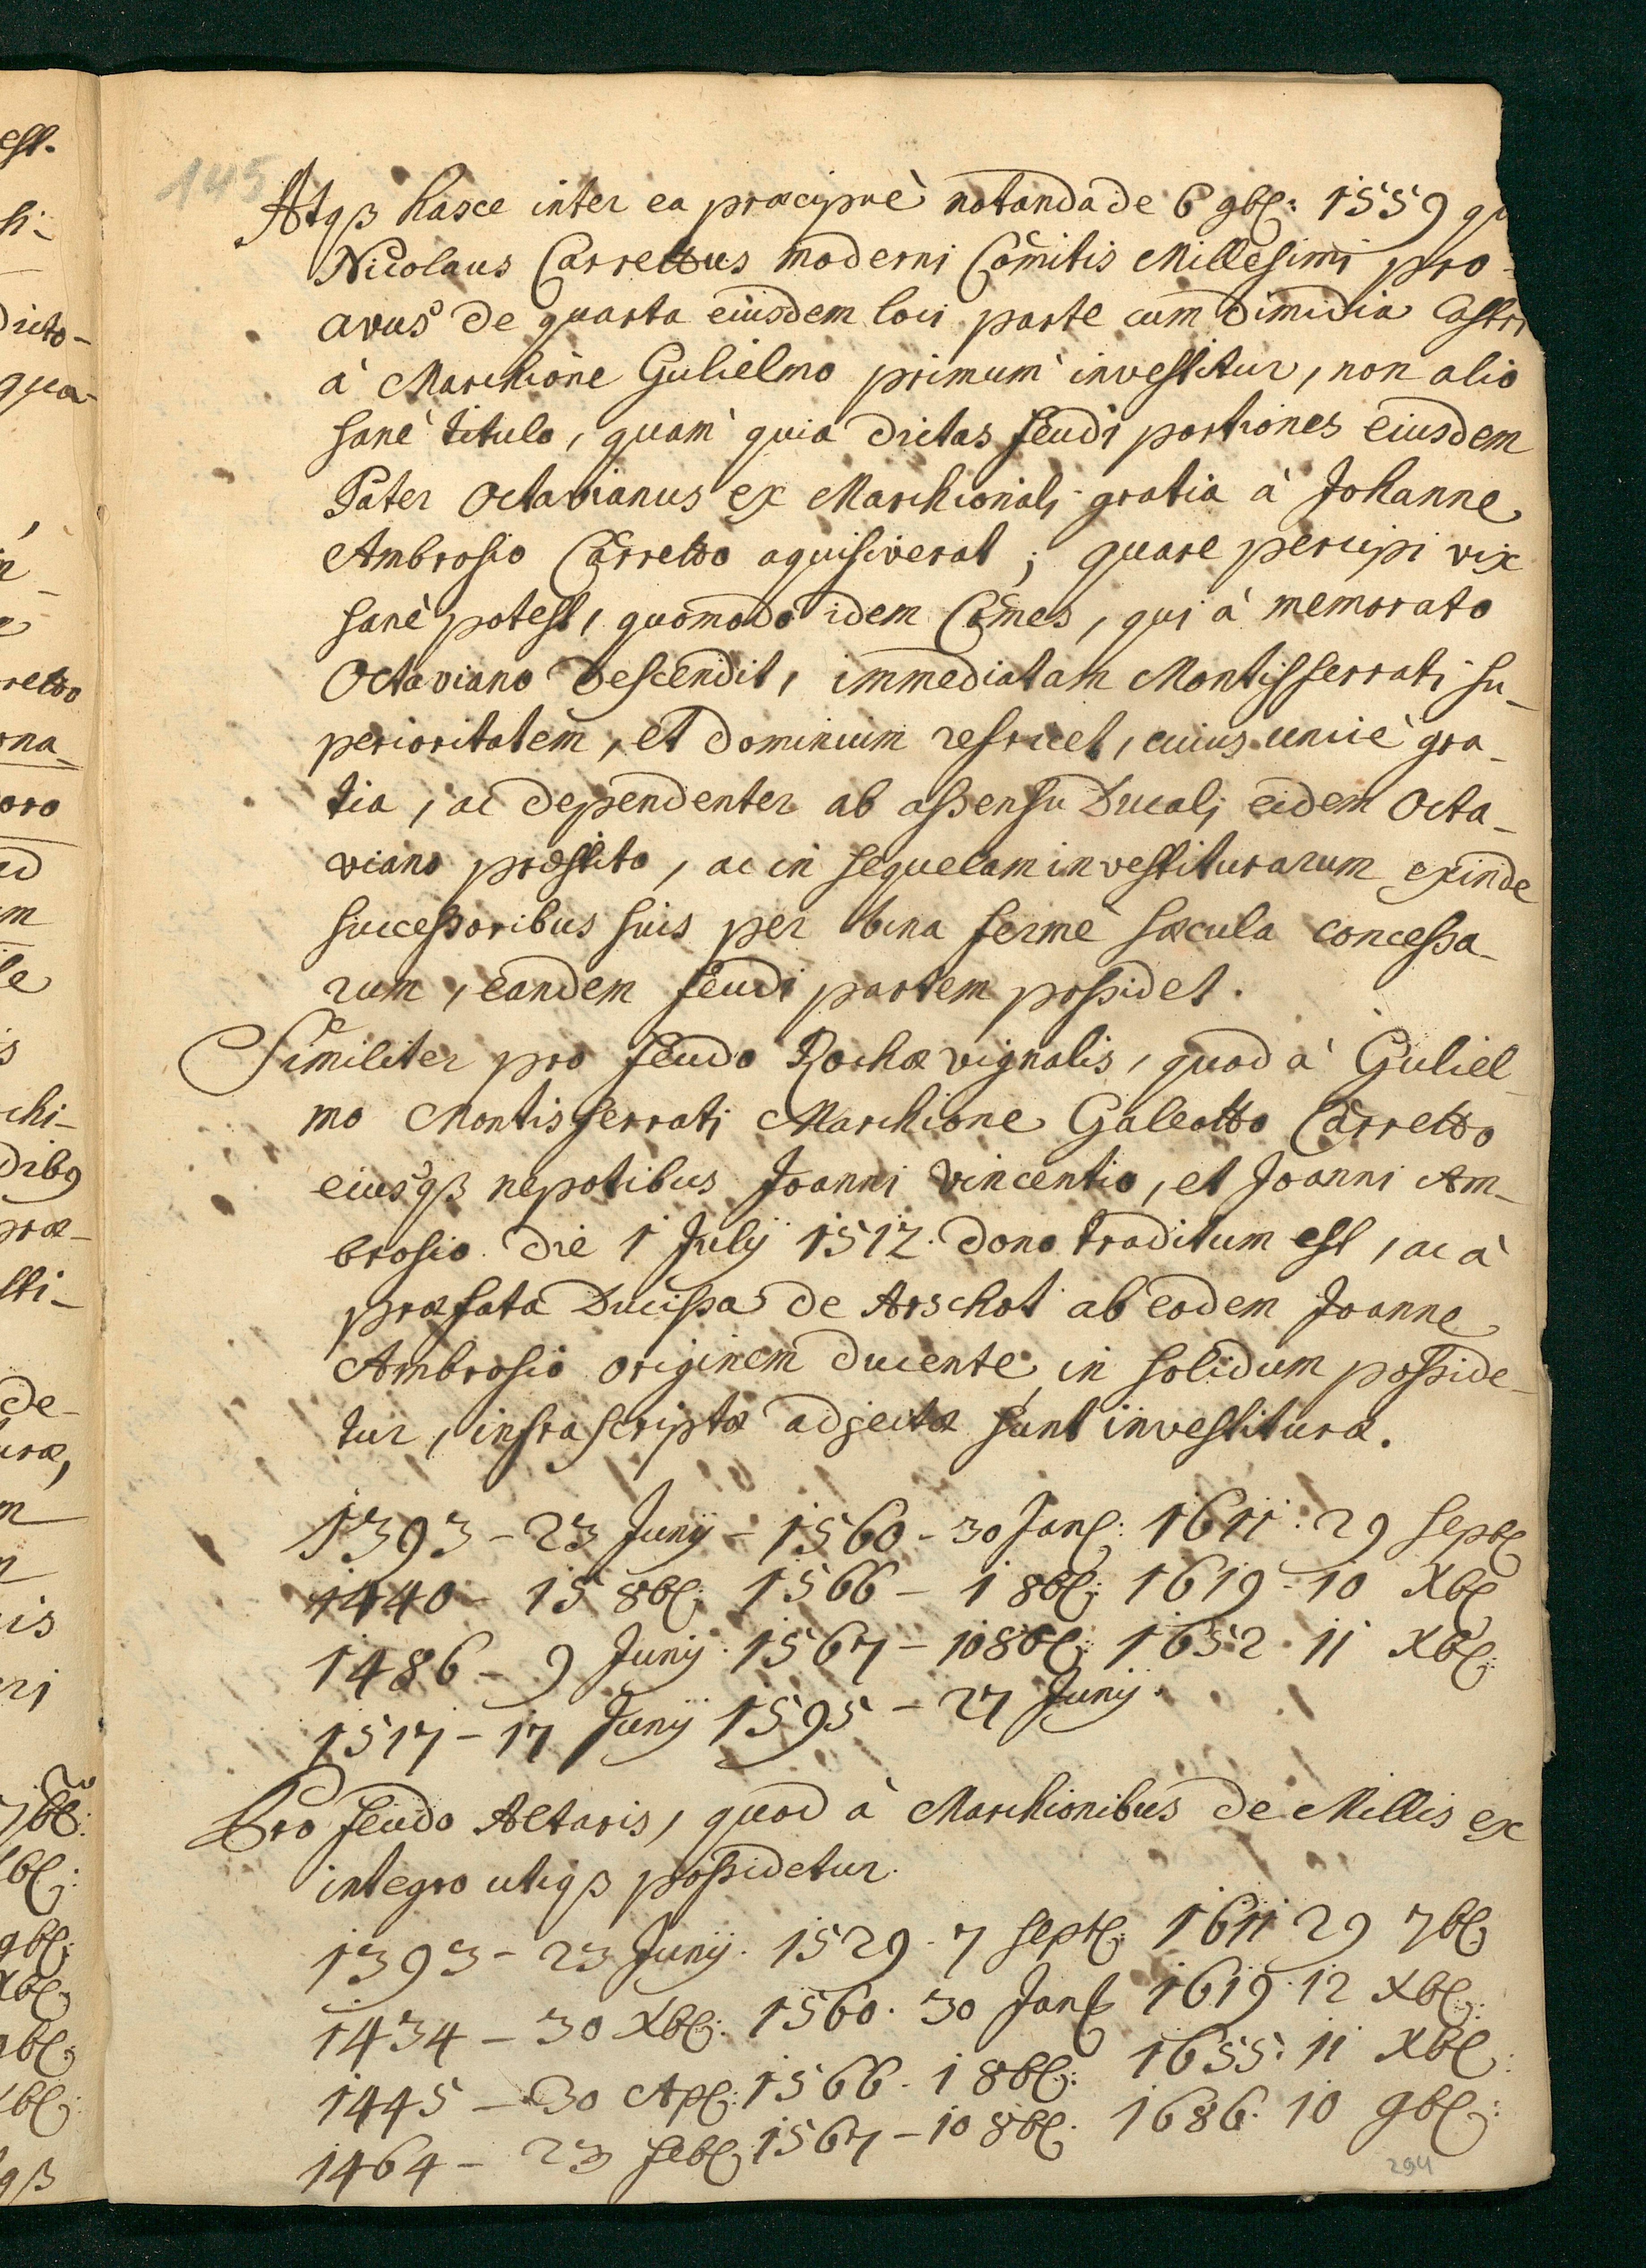 145
Atqß hasce inter ea præcipuè notanda de 6 9bł: 1559 qu
Nicolaus Carrettus moderni Comitis Millesimi pro-
avus de quarta eiusdem loci parte cum dimidia Castri
à Marchione Gulielmo primum investitur, non alio
sanè titulo, quam quia dictas feudi portiones eiusdem
Pater Octavianus ex Marchionali gratia à Johanne
Ambrosio Carretto aquisiverat; quare percipi vix
sanè potest, quomodo idem Comes, qui à memorato
Octaviano descendit, immediatam Montisferrati su-
perioritatem, et dominium refricet, cuius unicè gra-
tia, ac dependenter ab assensu Ducali eidem Octa-
viano præstito, ac in sequelam investiturarum exinde
successoribus suis per bina fermè sæcula concessa-
rum, eandem feudi partem possidet.
Similiter pro feudo Rochæ vignalis, quod à Guliel-
mo Montisferrati Marchione Galeotto Carretto
eiusqß nepotibus Joanni Vincentio, et Joanni Am-
brosio die 1 Julÿ 1512. dono traditum est, ac à
præfata Ducissa de Arschot ab eodem Joanne
Ambrosio originem ducente, in solidum posside-
tur, infrascriptæ adjectæ sunt investituræ.
1393 - 23 Junÿ - 1560 - 30 Janł: 1611. 29 Septł
1440 - 15 8bł: 1566 - 1 8bł: 1619. 10 Xbł
1486 - 9 Junÿ. 1567 - 10 8bł: 1652. 11 Xbł:
1517 - 17 Junÿ 1595 - 27 Junÿ.
Pro feudo Altaris, quod à Marchionibus de Millis ex
integro utiqß possidetur.
1393 - 23 Junÿ. 1529. 7 Septł: 1611 29 7bł
1434 - 30 Xbł: 1560. 30 Janł 1619. 12 Xbł:
1445 - 30 Apł: 1566. 1 8bł: 1655. 11 Xbł:
1464 - 23 febł: 1567 - 10 8bł. 1686. 10 9bł:
294